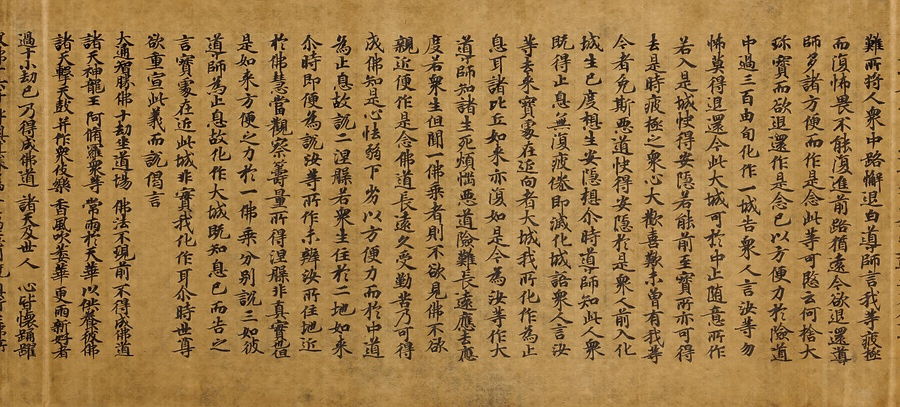 難所將人衆中路懈退白導師言我等疲極
而復怖畏不能復進前路猶遠今欲退還導
師多諸方便而作是念此等可愍云何捨大
珎寶而欲退還作是念已以方便力於險道
中過三百由旬化作一城告衆人言汝等勿
怖莫得退還今此大城可於中止随意所作
若入是城快得安隠若能前至寶所亦可得
去是時疲極之衆心大歡喜歎未曾有我等
今者免斯惡道快得安隠於是衆人前入化
城生已度想生安隠想尒時導師知此人衆
既得止息無復疲惓即滅化城語衆人言汝
等去來寶處在近向者大城我所化作為止
息耳諸比丘如来亦復如是今為汝等作大
導師知諸生死煩惱惡道險難長遠應去應
度若衆生但聞一佛乗者則不欲見佛不欲
親近便作是念佛道長遠久受勤苦乃可得
成佛知是心怯弱下劣以方便力而於中道
為止息故說二涅槃若衆生住於二地如来
尒時即便為說汝等所作未辦汝所住地近
於佛慧當觀察籌量所得涅槃非真實但
是如来方便之力於一佛乗分别說三如彼
導師為止息故化作大城既知息已而告之
言寶處在近此城非實我化作耳尒時世尊
欲重宣此義而說偈言
大通智勝佛 十劫坐道場 佛法不現前 不得成佛道
諸天神龍王 阿脩羅衆等 常雨於天華 以供養彼佛
諸天擊天鼓 并作衆伎樂 香風吹萎華 更雨新好者
過十小劫已 乃得成佛道 諸天及世人 心皆懐踊躍